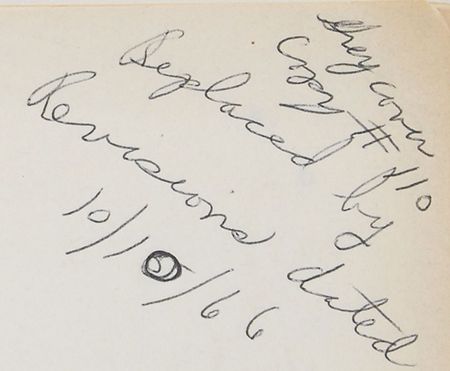 grey cover
copy # 110
Replaced by
Revisions dated
10/10/66